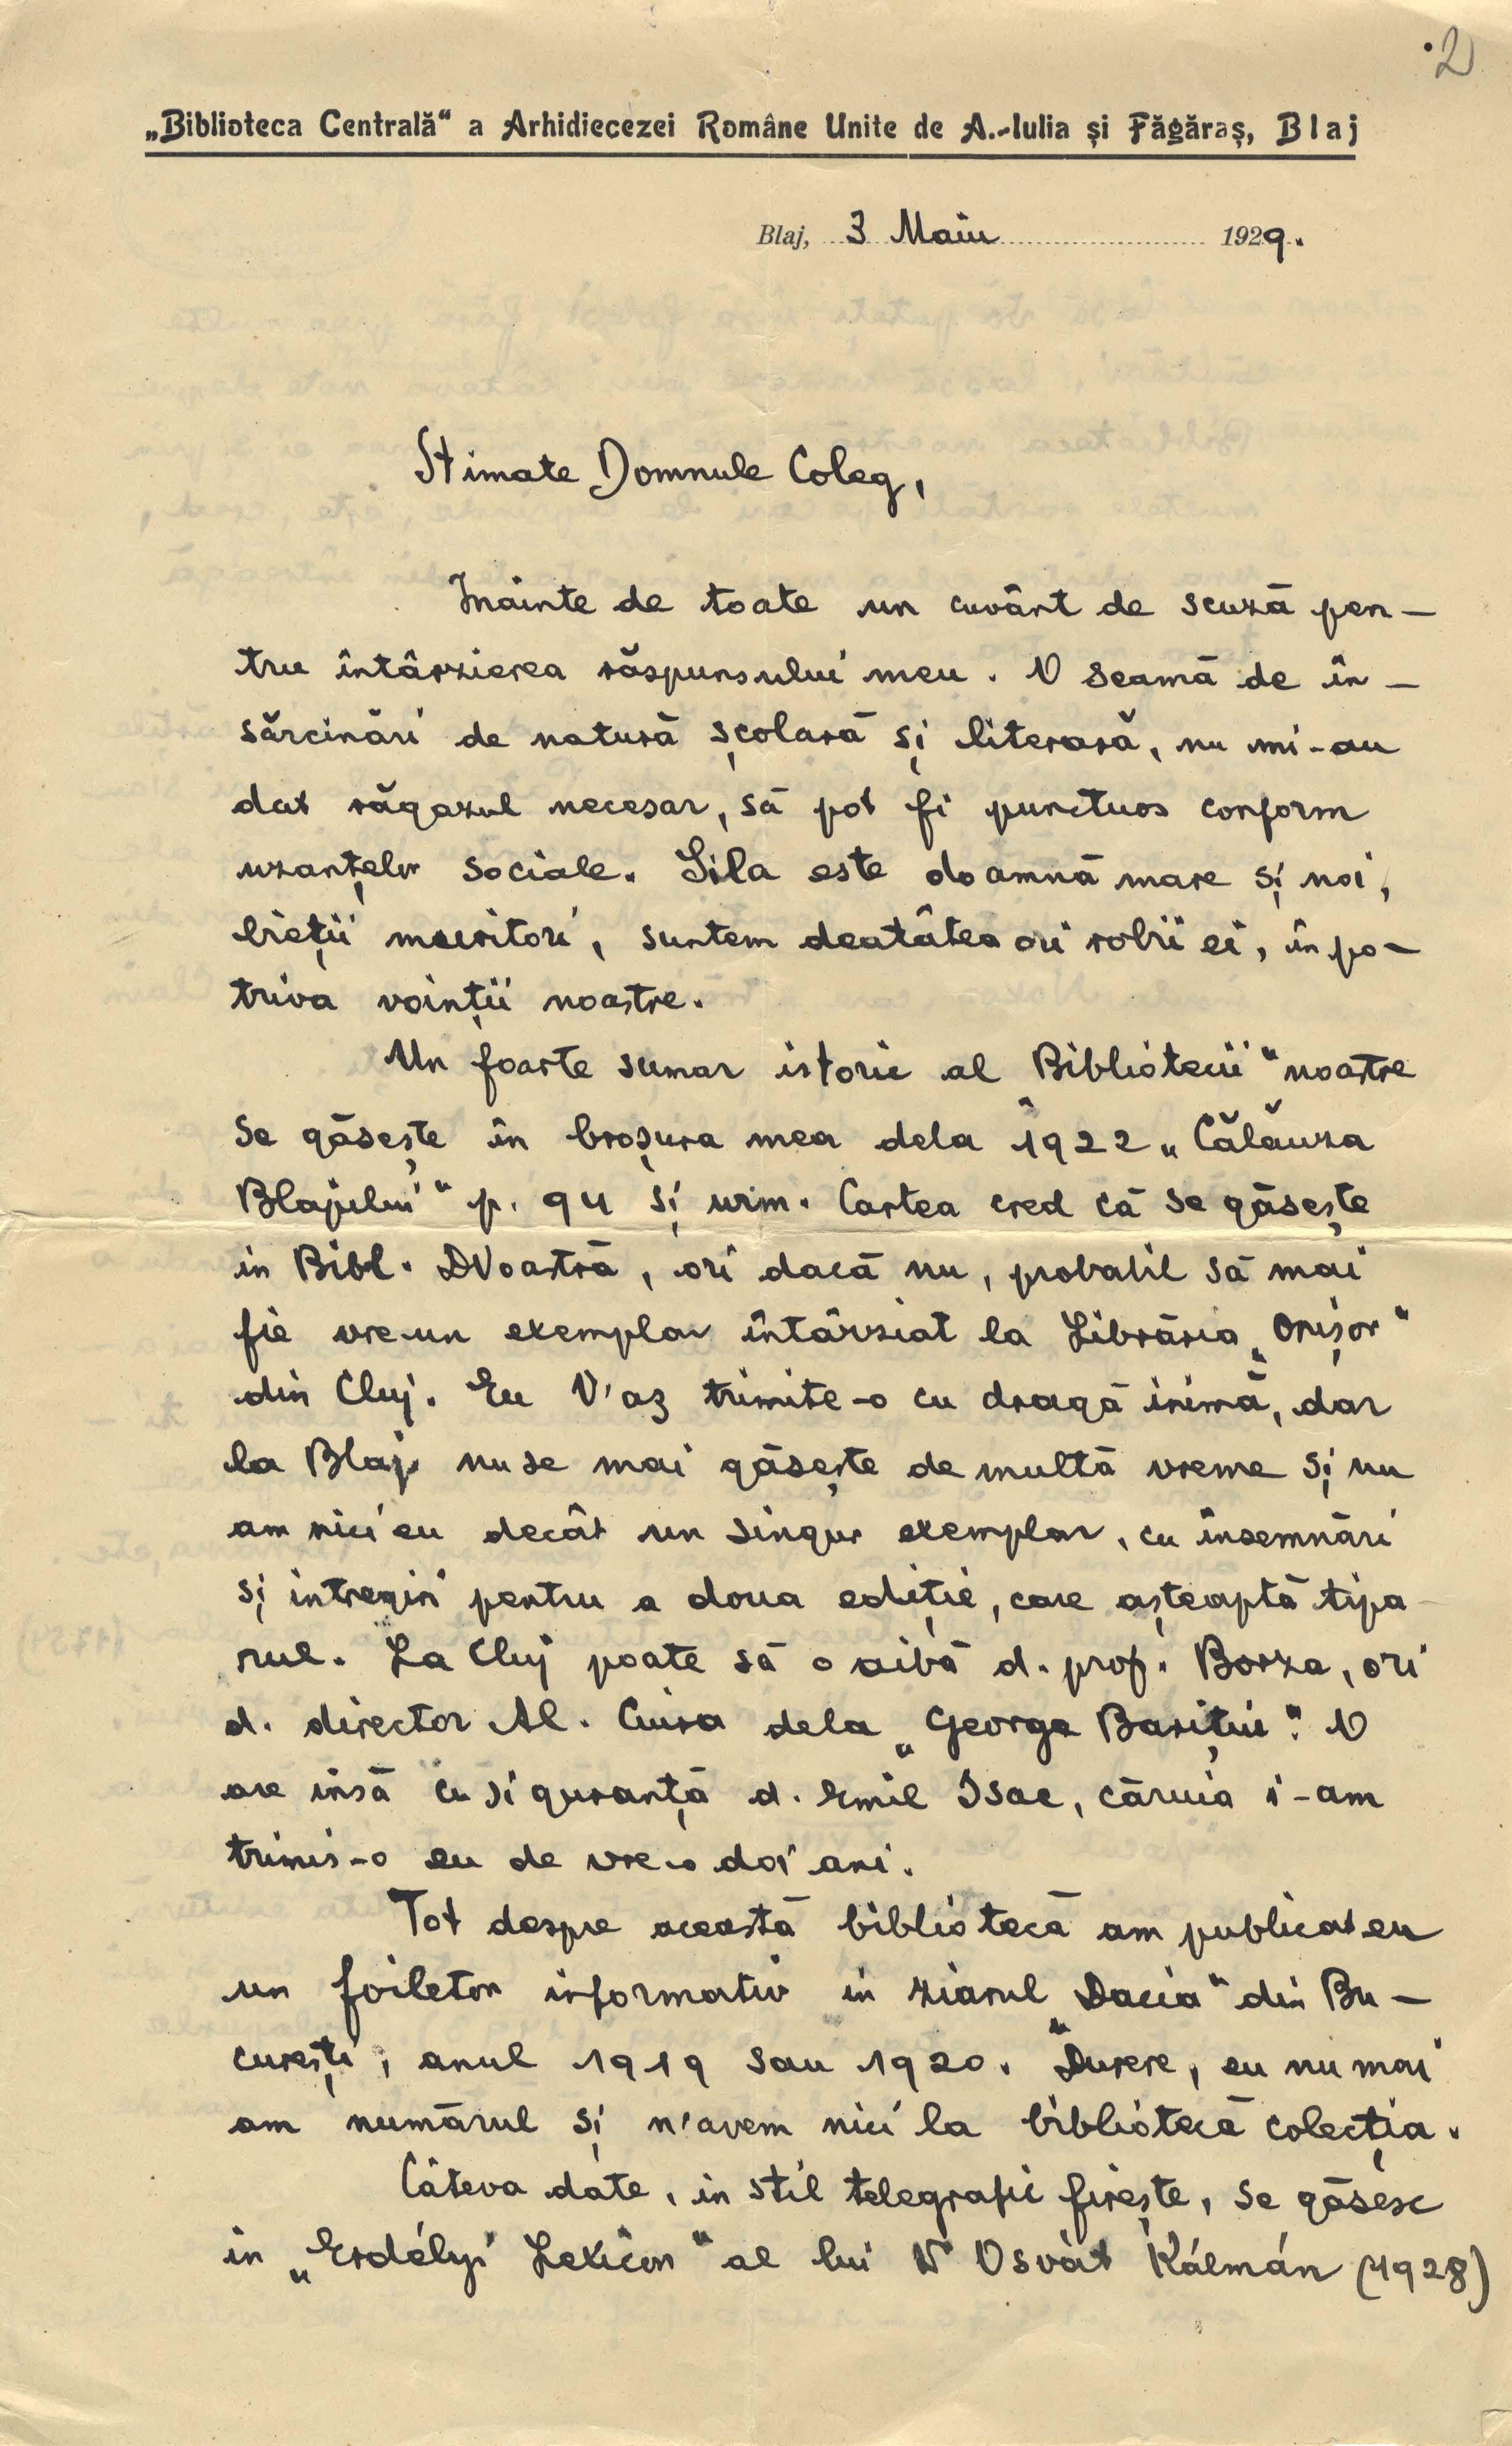 2
„Biblioteca Centrală“ a Arhidiecezei Române Unite de A.-Iulia și Făgăraș, Blaj
Blaj, 3 Maiu 1929.
Stimate Domnule Coleg,
Inainte de toate un cuvânt de scuză pen-
tru întârzierea răspunsului meu. O seamă de în-
sărcinări de natură școlară și literară, nu mi-au
dat răgazul necesar, să pot fi punctuos conform
uzanțelor sociale. Sila este doamnă mare și noi,
bieții muritori, suntem deatâtea ori robii ei, în po-
triva voinții noastre.
Un foarte sumar istoric al „Bibliotecii“ noastre
se găsește în broșura mea dela 1922 „Călăuza
Blajului“ p. 94 și urm. Cartea cred că se găsește
in Bibl. DVoastră, ori dacă nu, probabil să mai
fie vre-un exemplar întârziat la Librăria „Orișor“
din Cluj. Eu V'aș trimite-o cu dragă inimă, dar
la Blaj nu se mai găsește de multă vreme și nu
am nici eu decât un singur exemplar, cu însemnări
și intregiri pentru a doua ediție, care așteaptă tipa-
rul. La Cluj poate să o aibă d. prof. Borza, ori
d. director Al. Ciura dela „George Barițiu“. O
are însă cu siguranță d. Emil Isac, căruia i-am
trimis-o eu de vre-o doi ani.
Tot despre această bibliotecă am publicat eu
un foileton informativ in ziarul „Dacia“ din Bu-
curești, anul 1919 sau 1920. Durere, eu nu mai
am numărul și n'avem nici la bibliotecă colecția.
Câteva date, in stil telegrafic firește, se găsesc
in „Erdélyi Lexicon“ al lui Osvát Kálmán (1928)